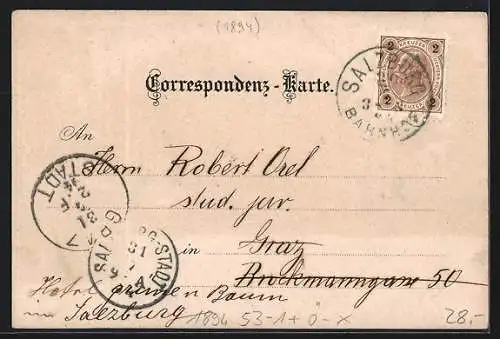 (1894)
2 KREUZER 2
2 KREUZER 2
SALZBURG
BAHNHOF
Correspondenz-Karte.
An
Herrn Robert Orel
stud. jur.
in Graz
Brockmanngasse 50
Hotel grünen Baum
in Salzburg
GRAZ STADT
31 7
SALZBURG-STADT
31 7
1894 53-1+Ö-X
28.-